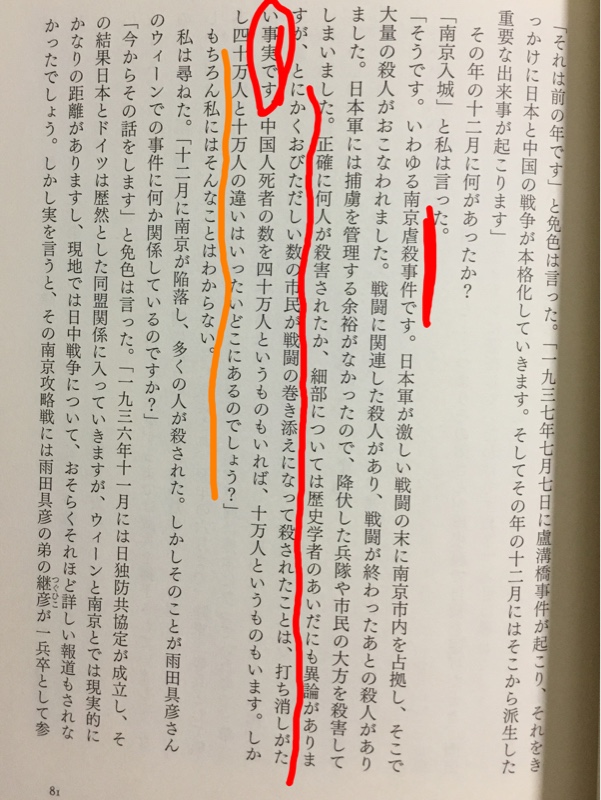 「それは前の年です」と免色は言った。「一九三七年七月七日に盧溝橋事件が起こり、それをき
っかけに日本と中国の戦争が本格化していきます。そしてその年の十二月にはそこから派生した
重要な出来事が起こります」
その年の十二月に何があったか?
「南京入城」と私は言った。
「そうです。いわゆる南京虐殺事件です。日本軍が激しい戦闘の末に南京市内を占拠し、そこで
大量の殺人がおこなわれました。戦闘に関連した殺人があり、戦闘が終わったあとの殺人があり
ました。日本軍には捕虜を管理する余裕がなかったので、降伏した兵隊や市民の大方を殺害して
しまいました。正確に何人が殺害されたか、細部については歴史学者のあいだにも異論がありま
すが、とにかくおびただしい数の市民が戦闘の巻き添えになって殺されたことは、打ち消しがた
い事実です。中国人死者の数を四十万人というものもいれば、十万人というものもいます。しか
し四十万人と十万人の違いはいったいどこにあるのでしょう?」
もちろん私にはそんなことはわからない。
私は尋ねた。「十二月に南京が陥落し、多くの人が殺された。しかしそのことが雨田具彦さん
のウィーンでの事件に何か関係しているのですか?」
「今からその話をします」と免色は言った。「一九三六年十一月には日独防共協定が成立し、そ
の結果日本とドイツは歴然とした同盟関係に入っていきますが、ウィーンと南京とでは現実的に
かなりの距離がありますし、現地では日中戦争について、おそらくそれほど詳しい報道もされな
かったでしょう。しかし実を言うと、その南京攻略戦には雨田具彦の弟の継彦が一兵卒として参
つぐひこ
81